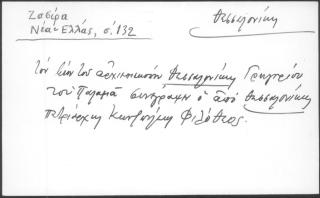 Ζαβίρα
Νέα Ἑλλάς, σ. 132
Θεσσαλονίκη
Τὸν βίον τοῦ Θεσσαλονίκης Γρηγορίου
τοῦ Παλαμᾶ συνέγραψεν ὁ ἀπὸ Θεσσαλονίκης
πατριάρχης Κων)πόλεως Φιλόθεος.